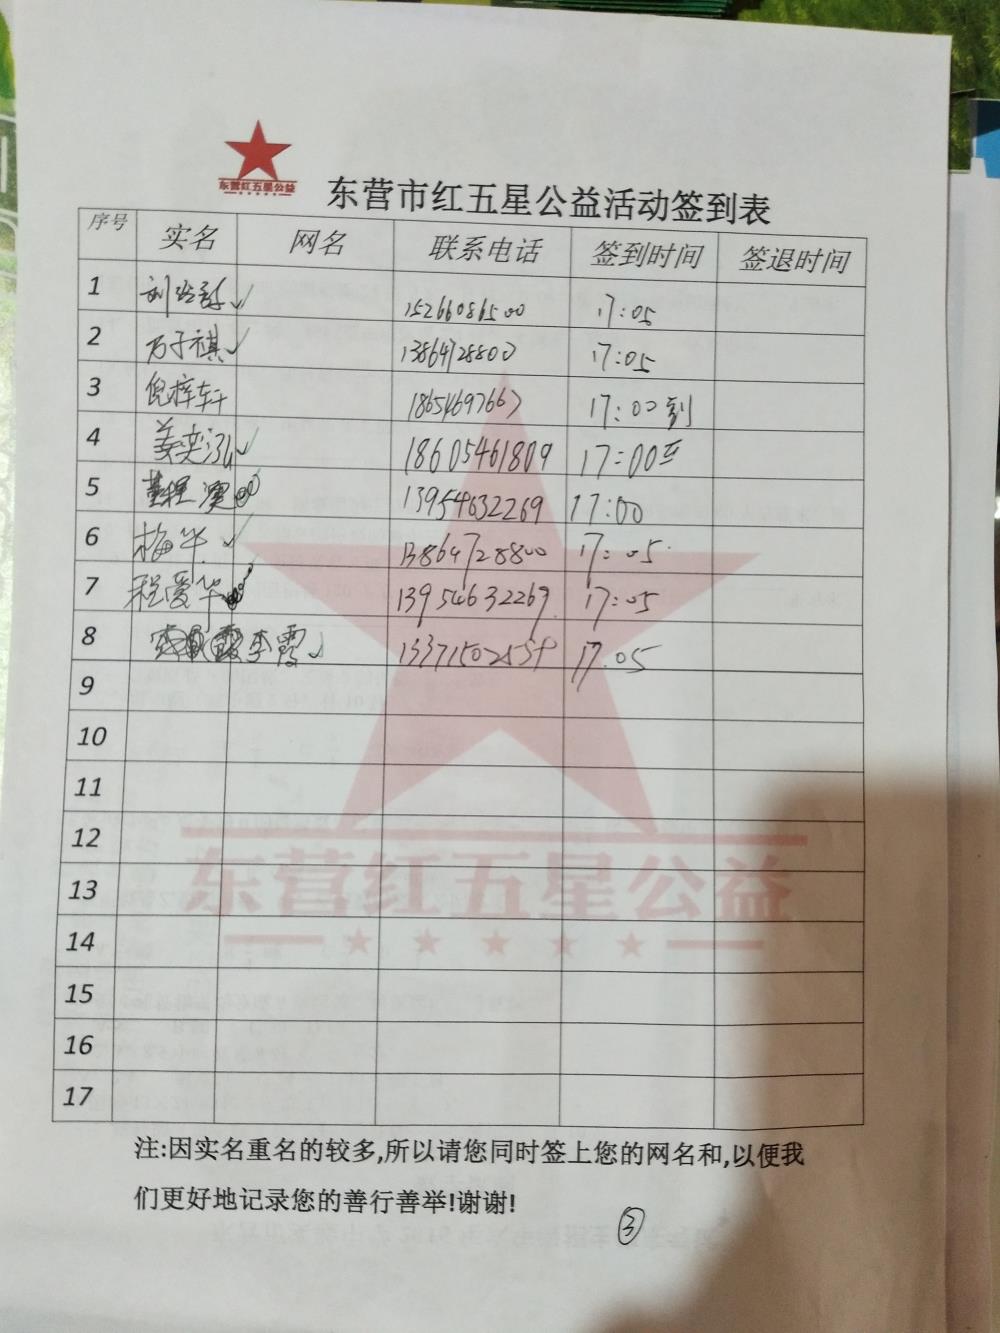 东营红五星公益
东营市红五星公益活动签到表
序号 实名 网名 联系电话 签到时间 签退时间
1 15266086500 17:05
2 万子祺 13864728800 17:05
3 倪梓轩 18654697667 17:00到
4 姜奕泓 18605461809 17:00
5 程澳 13954632269 17:00
6 梅华 13864728800 17:05
7 程爱华 13954632269 17:05
8 李霞 17.05
9
10
11
12
13
14
15
16
17
东营红五星公益
注:因实名重名的较多,所以请您同时签上您的网名和,以便我
们更好地记录您的善行善举!谢谢!
③